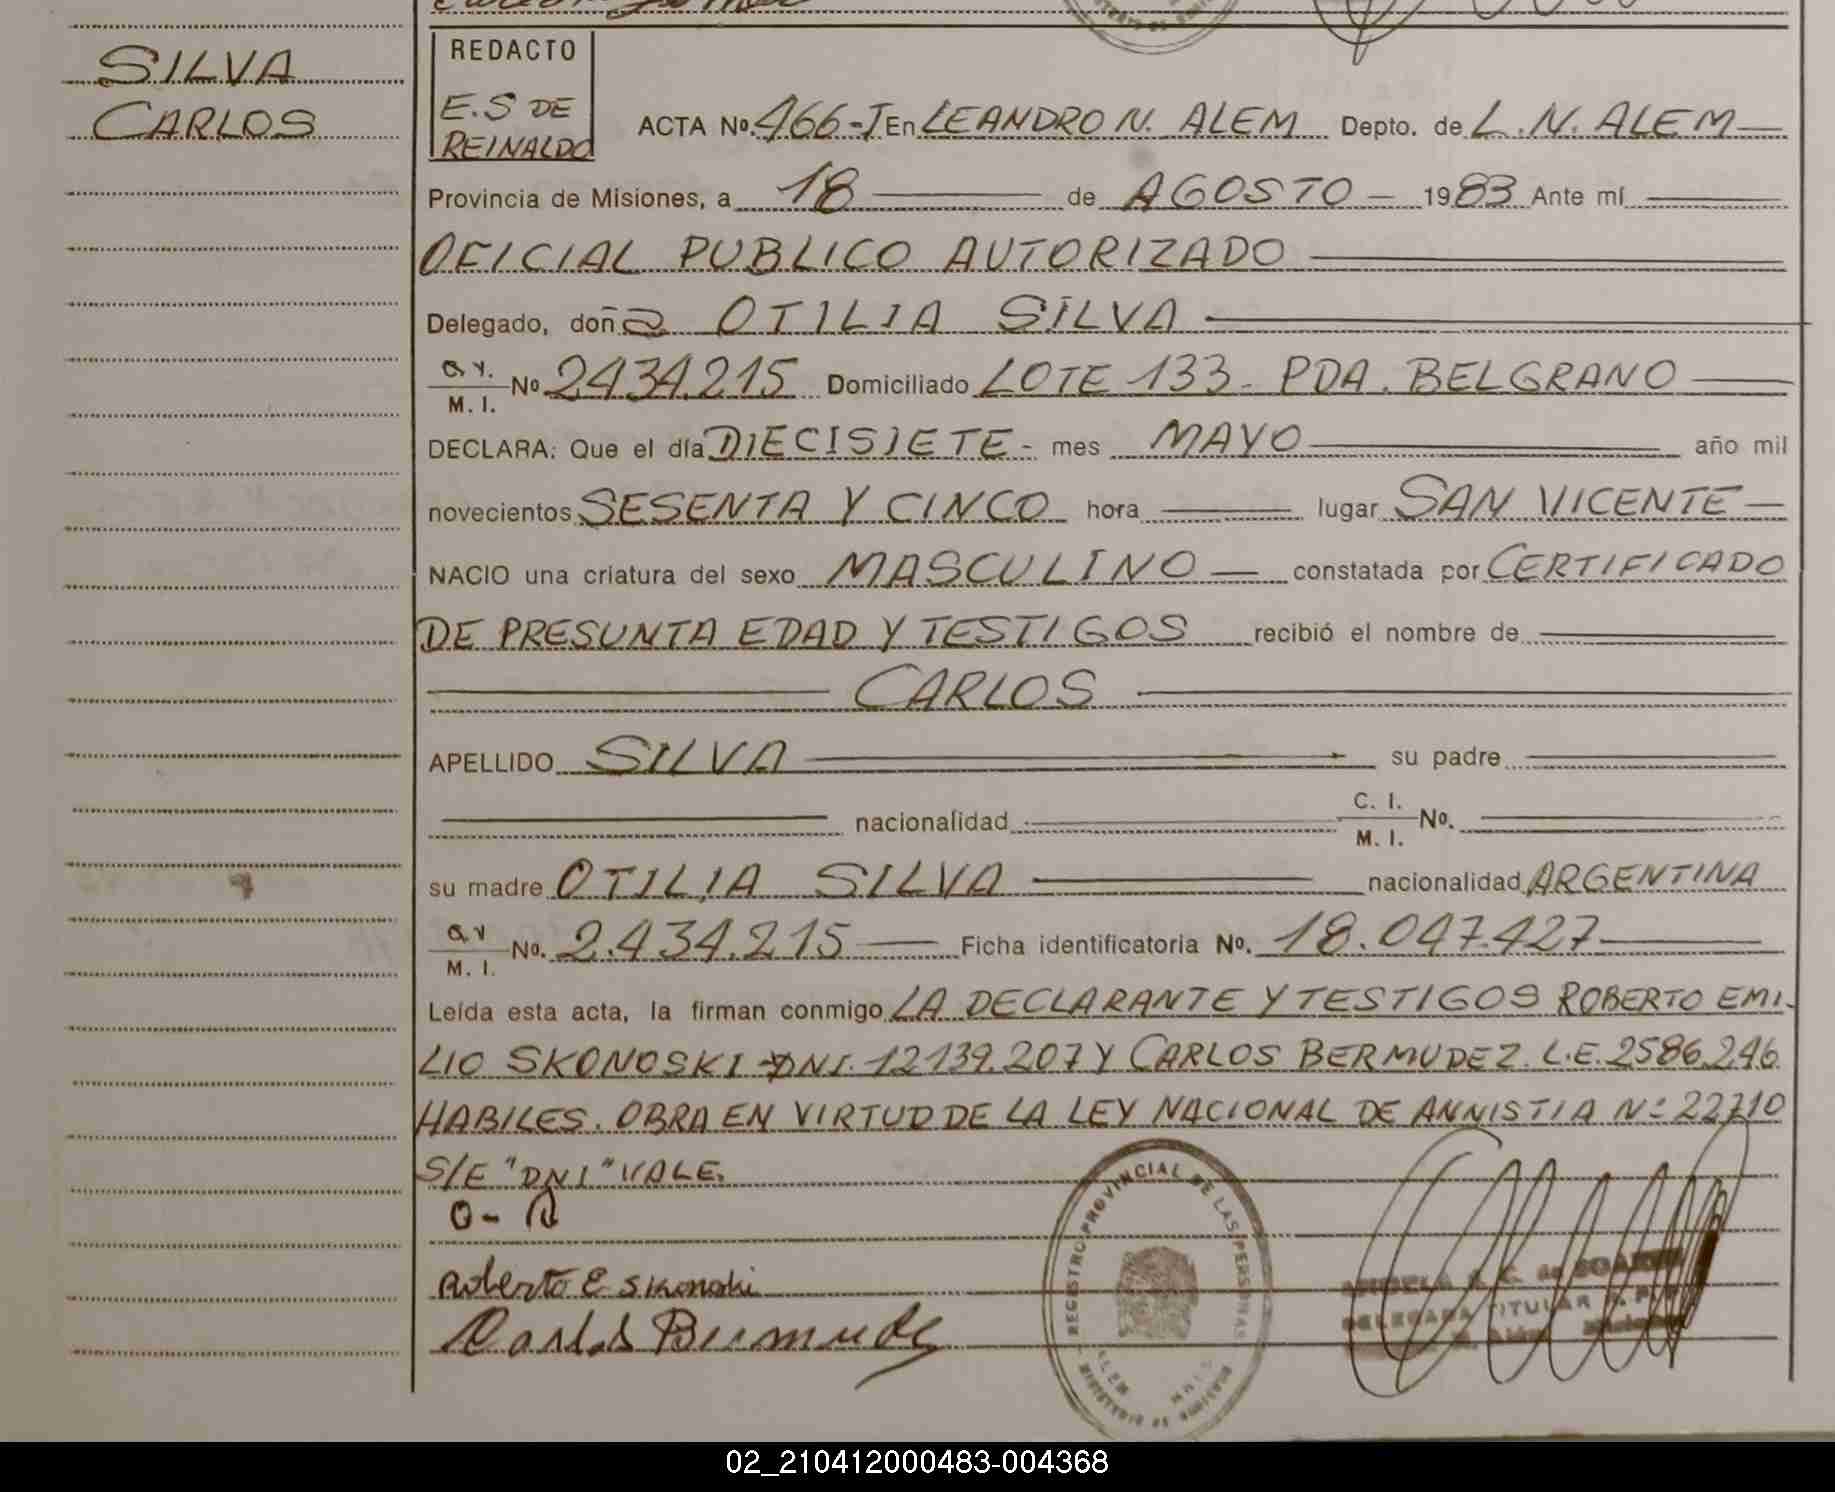 SILVA
CARLOS
REDACTO
E.S DE
REINALDO
ACTA Nº. 466-J En LEANDRO N. ALEM Depto. de L.N. ALEM
Provincia de Misiones, a 18 de AGOSTO - 1983 Ante mí
OFICIAL PUBLICO AUTORIZADO
Delegado, doña OTILIA SILVA
M. I. Nº 2434.215 Domiciliado LOTE 133 - PDA. BELGRANO
DECLARA: Que el día DIECISIETE - mes MAYO año mil
novecientos SESENTA Y CINCO hora lugar SAN VICENTE
NACIO una criatura del sexo MASCULINO constatada por CERTIFICADO
DE PRESUNTA EDAD Y TESTIGOS recibió el nombre de
CARLOS
APELLIDO SILVA su padre
nacionalidad C. I. M. I. Nº.
su madre OTILIA SILVA nacionalidad ARGENTINA
M. I. Nº. 2.434.215 Ficha identificatoria Nº. 18.047.427
Leída esta acta, la firman conmigo LA DECLARANTE Y TESTIGOS ROBERTO EMI-
LIO SKONOSKI DNI. 12139.207 Y CARLOS BERMUDEZ. L.E. 2586.246
HABILES. OBRA EN VIRTUD DE LA LEY NACIONAL DE AMNISTIA Nº 22710
S/E "DNI" VALE.
Roberto E Skonoski
Carlos Bermudez
REGISTRO PROVINCIAL DE LAS PERSONAS
ALEM
DELEGADA TITULAR
02_210412000483-004368